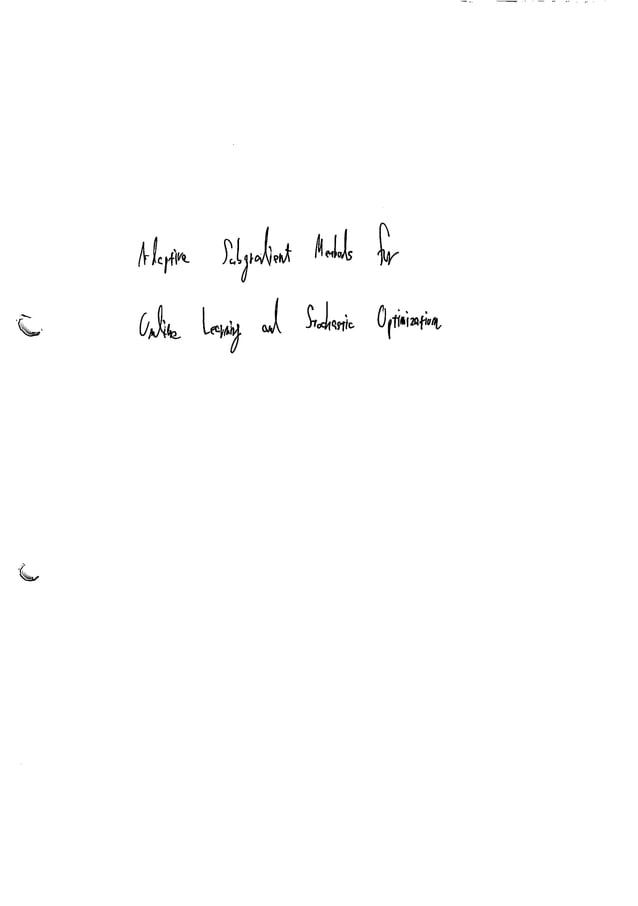 Adaptive Subgradient Methods for
Online Learning and Stochastic Optimization